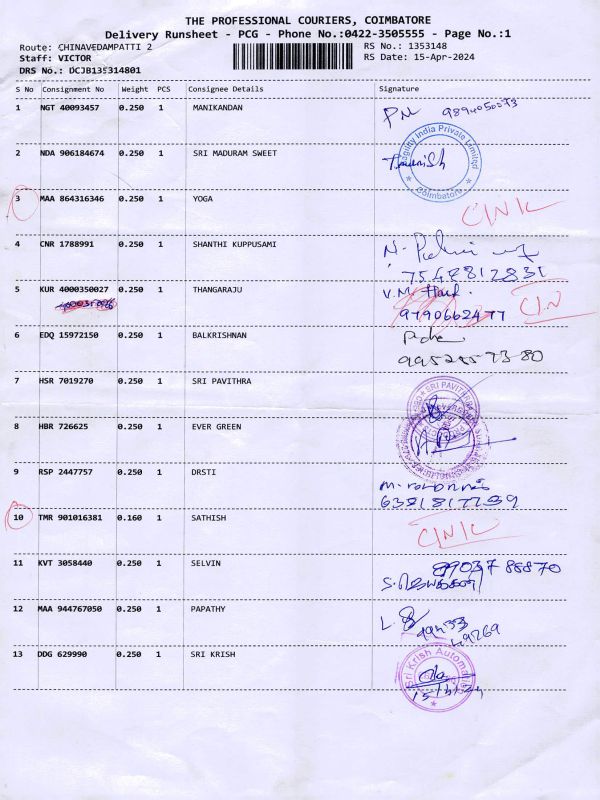 THE PROFESSIONAL COURIERS, COIMBATORE
Delivery Runsheet - PCG - Phone No.:0422-3505555 - Page No.:1
Route: CHINAVEDAMPATTI 2 RS No.: 1353148
Staff: VICTOR RS Date: 15-Apr-2024
DRS No.: DCJB135314801
S No Consignment No Weight PCS Consignee Details Signature
1 NGT 40093457 0.250 1 MANIKANDAN
2 NDA 906184674 0.250 1 SRI MADURAM SWEET
India Private Limited
Coimbatore
3 MAA 864316346 0.250 1 YOGA
4 CNR 1788991 0.250 1 SHANTHI KUPPUSAMI
7548812831
5 KUR 4000350027 0.250 1 THANGARAJU
9790662477
6 EDQ 15972150 0.250 1 BALKRISHNAN
7 HSR 7019270 0.250 1 SRI PAVITHRA
SRI PAVITHRA
8 HBR 726625 0.250 1 EVER GREEN
9 RSP 2447757 0.250 1 DRSTI
10 TMR 901016381 0.160 1 SATHISH
11 KVT 3058440 0.250 1 SELVIN
12 MAA 944767050 0.250 1 PAPATHY
13 DDG 629990 0.250 1 SRI KRISH
Sri Krish
15/4/24